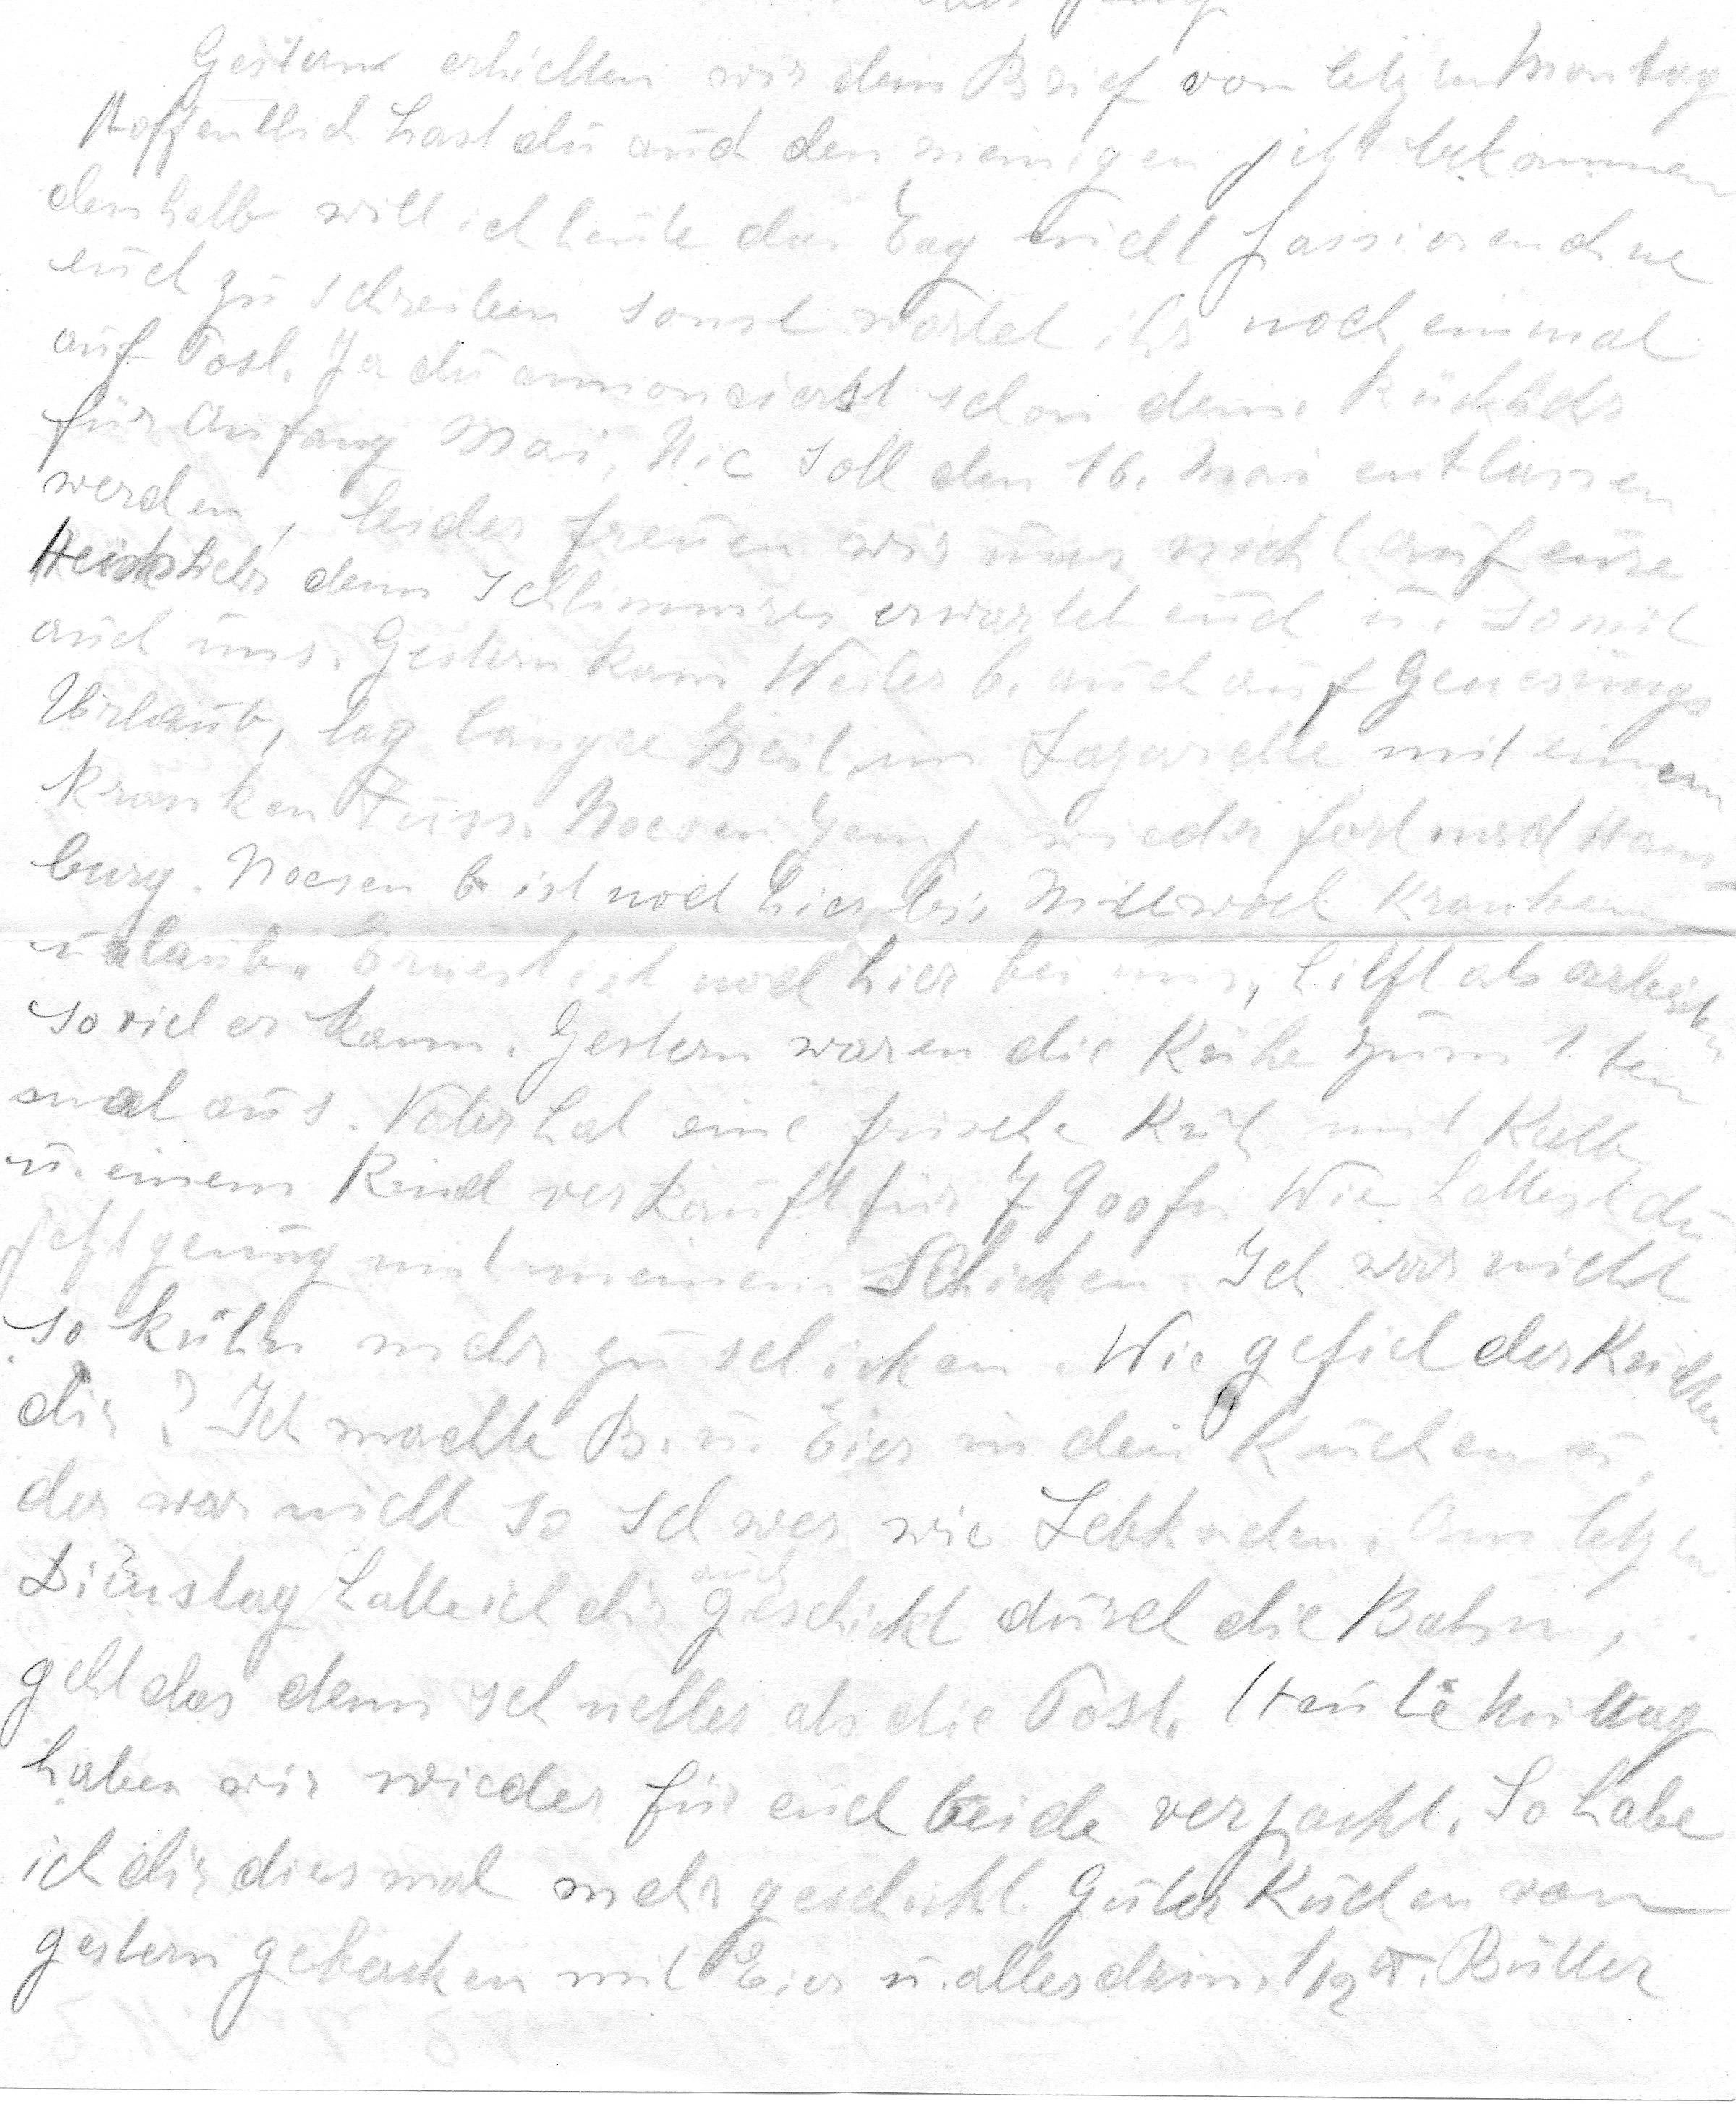 Gestern erhielten wir dein Brief vom letzen Montag
Hoffentlich hast du auch den meinigen jetzt bekommen
deshalb will ich heute den Tag nicht passieren ohne
euch zu schreiben sonst wartet ihr noch einmal
auf Post. Ja du annoncierst schon deine Rückkehr
für Anfang Mai, Nic soll den 16. Mai entlassen
werden, leider freuen wir uns nicht auf eure
denn schlimmres erwartet euch u. somit
auch uns. Gestern kam Weiler b. auch auf Genesungs
Urlaub, lag langre Zeit im Lazarette mit einem
kranken Fuss. Noesen wieder fort nach Ham-
burg. Noesen b ist noch hier bis Mittwoch Kranken
urlaub. Ernest ist noch hier bei uns, hilft als arbeiten
soviel er kann. Gestern waren die Kühe zum 1 ten
mal aus. Vater hat eine frische Kuh mit Kalb
u. einem Rind verkauft für 7900 fr Wie hattest du
jetzt genug mit meinem Schicken. Ich war nicht
so kühn mehr zu schicken. Wie gefiel der Kuchen
dir? Ich machte B. u. Eier in den Kuchen u.
der war nicht so schwer wie Lebkuchen. Am letzen
Dienstag hatte ich dir auch geschickt durch die Bahn,
geht das denn schneller als die Post. Heute Mittag
haben wir wieder für euch beide verpackt. So habe
ich dir diesmal mehr geschickt. Guter Kuchen von
gestern gebacken mit Eier u. alles drin. 1/2 ℔. Butter